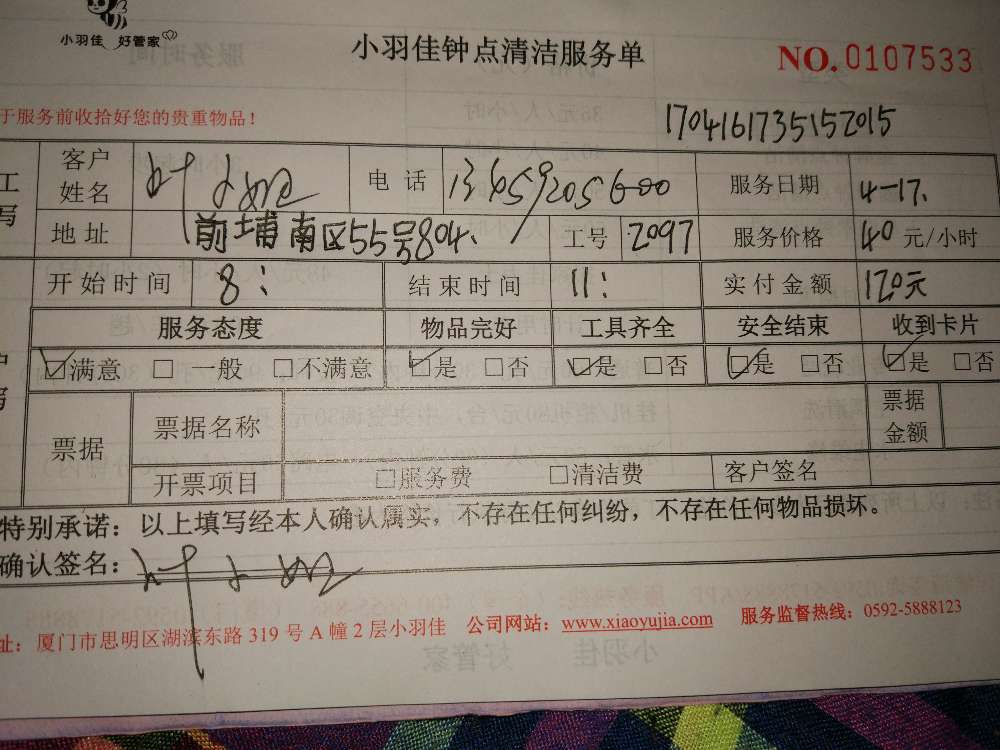 小羽佳 好管家
小羽佳钟点清洁服务单
NO.0107533
于服务前收拾好您的贵重物品！
1704161735152015
工 客户姓名 叶小姐 电话 13659205600 服务日期 4-17.
写 地址 前埔南区55号804. 工号 2097 服务价格 40 元/小时
开始时间 8: 结束时间 11: 实付金额 120元
服务态度 物品完好 工具齐全 安全结束 收到卡片
户 ☑满意 □一般 □不满意 ☑是 □否 ☑是 □否 ☑是 □否 ☑是 □否
写 票据 票据名称 票据金额
开票项目 □服务费 □清洁费 客户签名
特别承诺：以上填写经本人确认属实，不存在任何纠纷，不存在任何物品损坏。
确认签名：叶小姐
址：厦门市思明区湖滨东路 319 号 A 幢 2 层小羽佳 公司网站：www.xiaoyujia.com 服务监督热线：0592-5888123